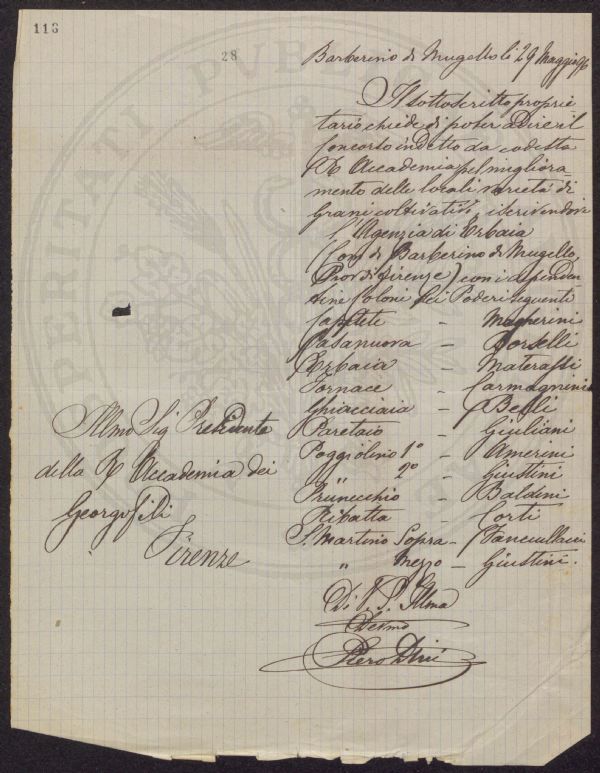 118
28
Barberino di Mugello li 29 Maggio 96
Il sottoscritto proprie
tario chiede di poter adire il
Concorso indetto da codesta
R Accademia pel migliora-
mento delle locali varietà di
Grani coltivati, iscrivendovi
l'Agenzia di Erbaia
(Com di Barberino di Mugello,
Prov di Firenze) con i dipenden
Coloni dei Poderi seguenti
Magherini
Casanuova - Borselli
Erbaia - Materassi
Fornace - Carmagnini
Ghiacciaia - Belli
Paretaio - Giuliani
Poggiolino 1° - Amerini
" 2° - Giustini
Prunecchio - Baldini
Ribatta - Corti
S. Martino Sopra - Fanciullacci
" Mezzo - Giustini.
Di V. S. Illma
Devmo
Piero Dini
Illmo Sig Presidente
della R Accademia dei
Georgofili
Firenze
PUBLICAE